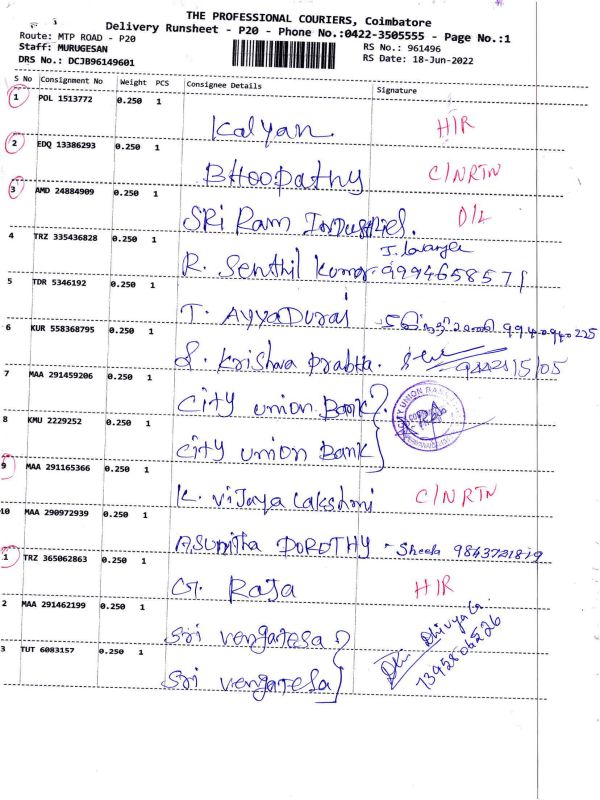 THE PROFESSIONAL COURIERS, Coimbatore
Delivery Runsheet - P20 - Phone No.:0422-3505555 - Page No.:1
Route: MTP ROAD - P20
Staff: MURUGESAN
DRS No.: DCJB96149601
RS No.: 961496
RS Date: 18-Jun-2022
S No Consignment No Weight PCS Consignee Details Signature
1 POL 1513772 0.250 1 Kalyan. H/R
2 EDQ 13386293 0.250 1 Bhoopathy C/NRTN
3 AMD 24884909 0.250 1 SRi Ram Industries. D/L
4 TRZ 335436828 0.250 1 R. Senthil Kumar J. Lavanya 9994658571
5 TDR 5346192 0.250 1 T. AyyaDurai
6 KUR 558368795 0.250 1 S. Krishna Prabha.
7 MAA 291459206 0.250 1 City union Bank
8 KMU 2229252 0.250 1 City union Bank
CITY UNION BANK
9 MAA 291165366 0.250 1 K. Vijaya Lakshmi C/NRTN
10 MAA 290972939 0.250 1 Asunitha DOROTHY - Sheela 9843721819
1 TRZ 365062863 0.250 1 G. Raja H/R
2 MAA 291462199 0.250 1 Sri vengatesa
3 TUT 6083157 0.250 1 Sri vengatesa
Dhivya G.